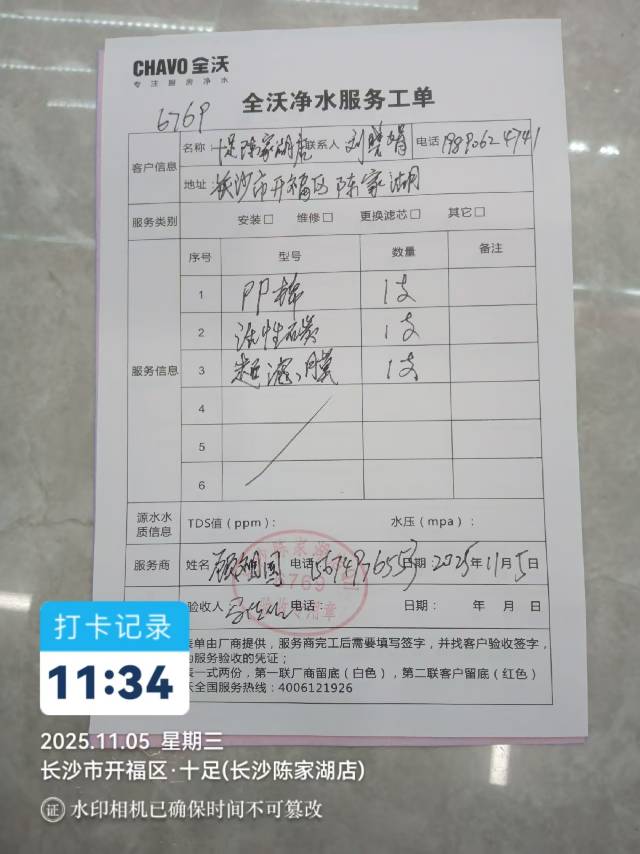 CHAVO 全沃
专注厨房净水
6769
全沃净水服务工单
客户信息 名称 十足陈家湖店 联系人 刘慧娟 电话
地址 长沙市开福区陈家湖
服务类别 安装□ 维修□ 更换滤芯□ 其它□
服务信息 序号 型号 数量 备注
1 PP棉 1支
2 活性炭 1支
3 超滤膜 1支
4
5
6
源水水质信息 TDS值（ppm）： 水压（mpa）：
服务商 姓名 电话 日期：2025年11月5日
验收人 电话： 日期： 年 月 日
表单由厂商提供，服务商完工后需要填写签字，并找客户验收签字，
为服务验收的凭证；
表一式两份，第一联厂商留底（白色），第二联客户留底（红色）
沃全国服务热线：4006121926
陈家湖
6769
验收专用章
打卡记录
11:34
2025.11.05 星期三
长沙市开福区·十足(长沙陈家湖店)
证 水印相机已确保时间不可篡改